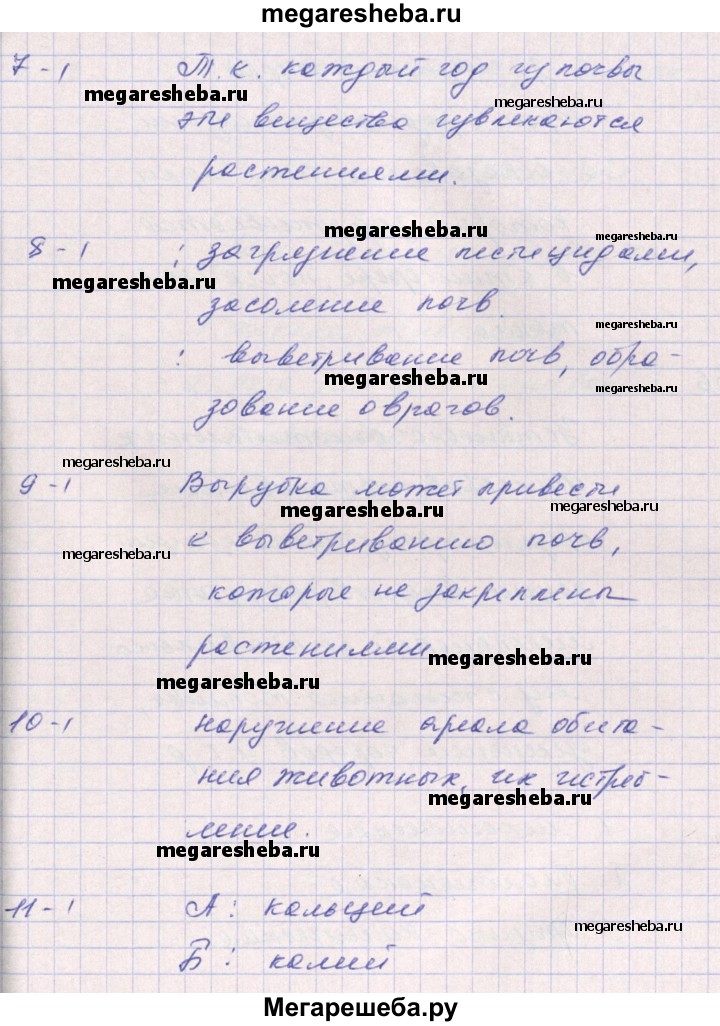 megaresheba.ru
7-1 Т.к. каждый год из почвы
megaresheba.ru
megaresheba.ru
эти вещества извлекаются
растениями.
megaresheba.ru
megaresheba.ru
8-1 : загрязнение пестицидами,
megaresheba.ru
засоление почв.
megaresheba.ru
: выветривание почв, обра-
megaresheba.ru
megaresheba.ru
зование оврагов.
megaresheba.ru
9-1 Вырубка может привести
megaresheba.ru
megaresheba.ru
к выветриванию почв,
megaresheba.ru
которые не закреплены
растениями
megaresheba.ru
megaresheba.ru
10-1 нарушение ареала обита-
megaresheba.ru
ния животных, их истреб-
megaresheba.ru
ление.
megaresheba.ru
megaresheba.ru
11-1 А: кальций
megaresheba.ru
Б: калий
Мегарешеба.ру